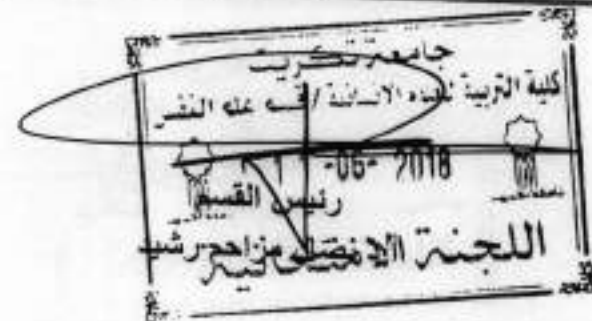 جامعة تكريت
كلية التربية للعلوم الانسانية / قسم علم النفس
-05- 2018
رئيس القسم
اللجنة الامتحانية